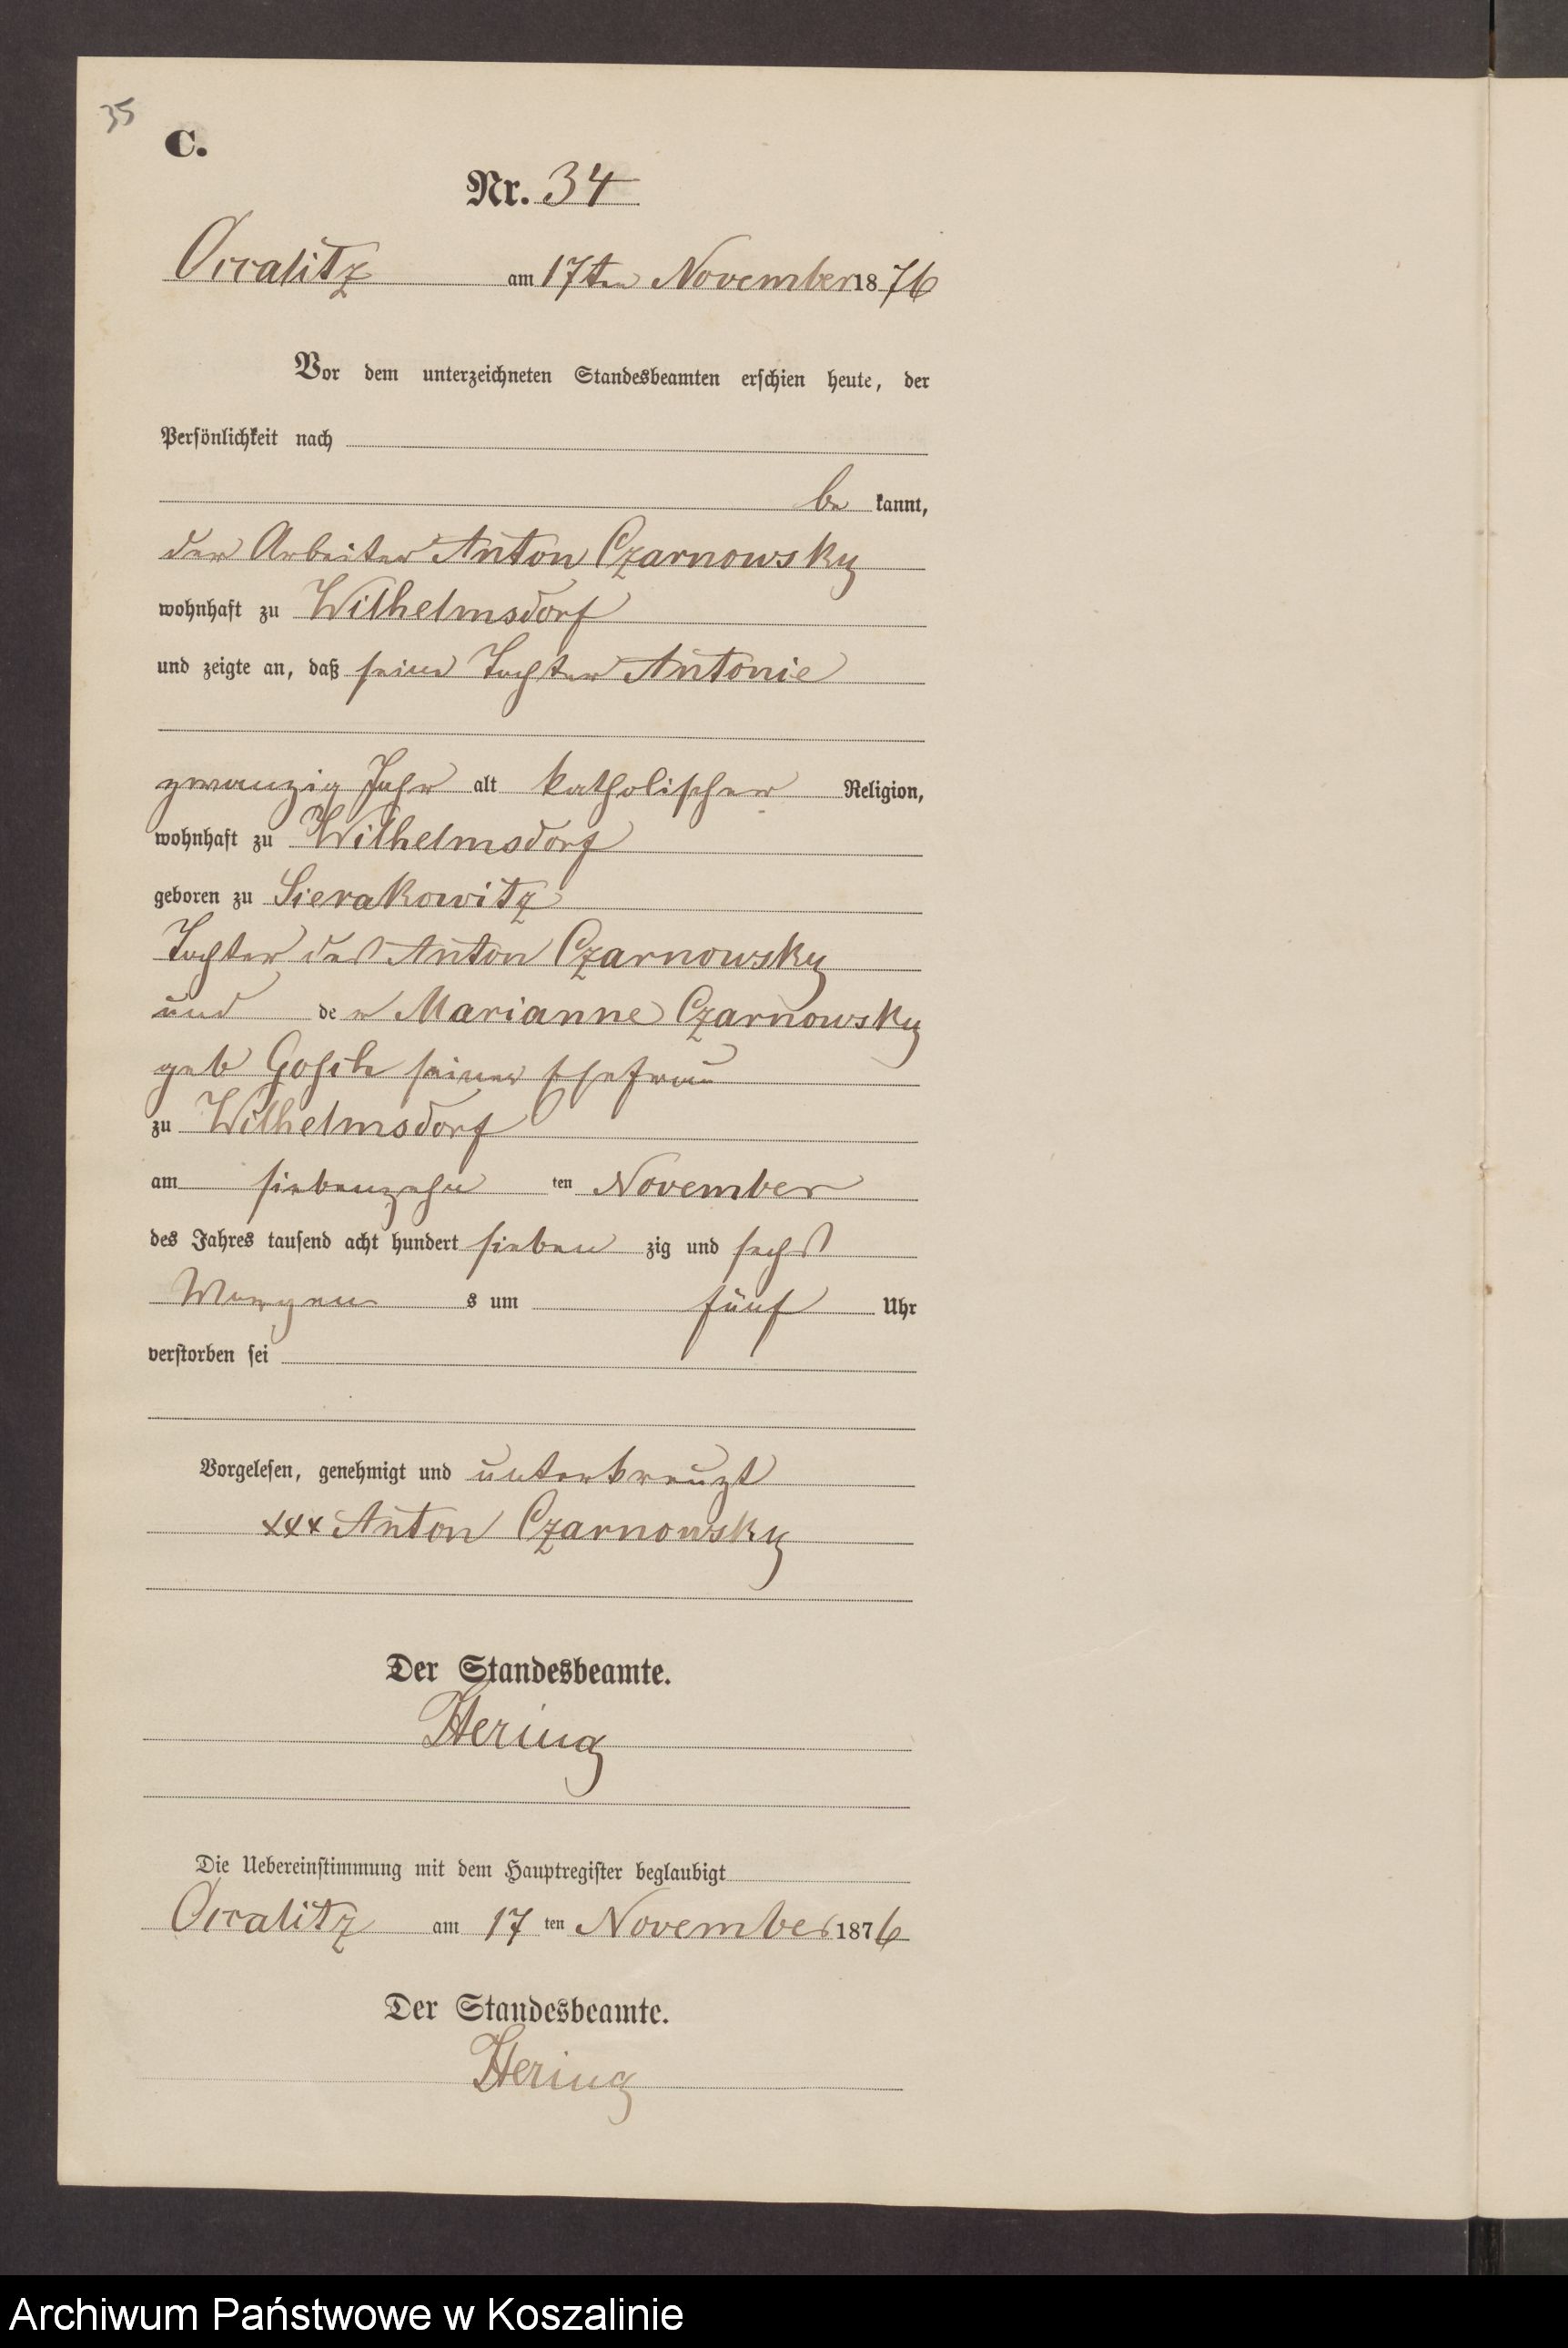 35
C.
Nr. 34
Occalitz am 17ten November 1876
Vor dem unterzeichneten Standesbeamten erschien heute, der
Persönlichkeit nach
be kannt,
der Arbeiter Anton Czarnowsky
wohnhaft zu Wilhelmsdorf
und zeigte an, daß seine Tochter Antonie
zwanzig Jahr alt katholischer Religion,
wohnhaft zu Wilhelmsdorf
geboren zu Sierakowitz
Tochter des Anton Czarnowsky
und der Marianne Czarnowsky
geb seiner Ehefrau
zu Wilhelmsdorf
am siebenzehn ten November
des Jahres tausend acht hundert sieben zig und sechs
Morgen s um fünf Uhr
verstorben sei
Vorgelesen, genehmigt und unterkreuzt
xxx Anton Czarnowsky
Der Standesbeamte.
Hering
Die Uebereinstimmung mit dem Hauptregister beglaubigt
Occalitz am 17 ten November 1876
Der Standesbeamte.
Hering
Archiwum Państwowe w Koszalinie